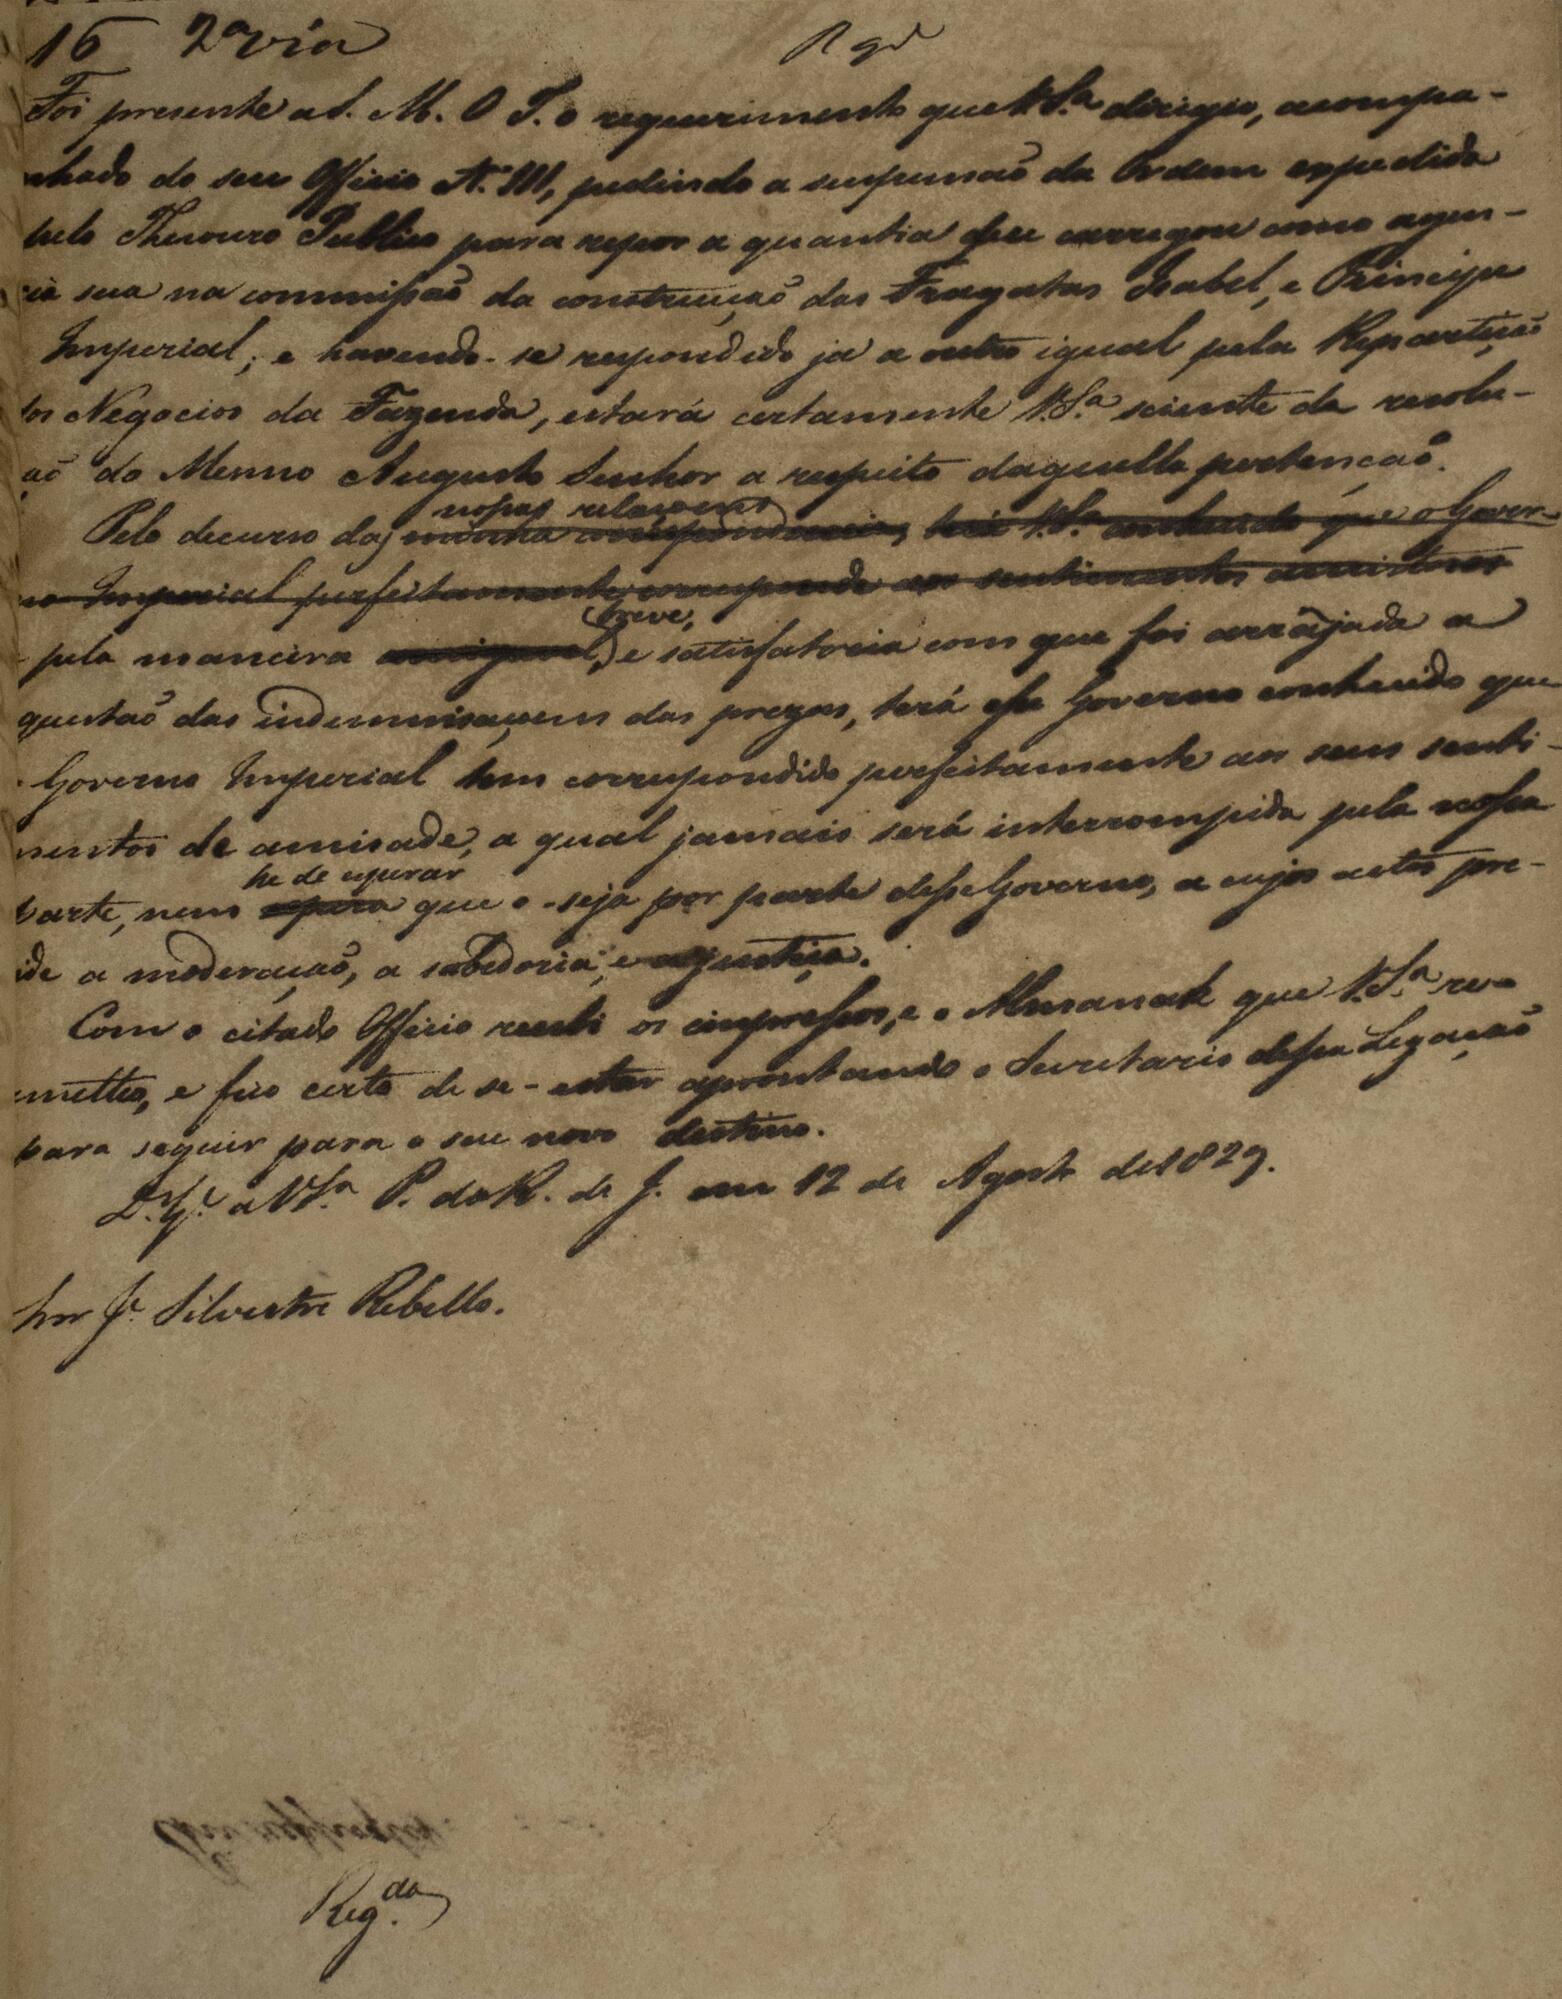 16 2ª via Rgd
Foi presente a S. M. O I. o requerimento que V.Sª dirigio, acompa-
nhado do seu Officio Nº 111, pedindo a suspensaõ da Ordem expedida
pelo Thesouro Publico para repor a quantia que carregou como agen-
cia sua na commissaõ da construcçaõ das Fragatas Isabel, e Principe
Imperial; e havendo-se respondido ja a outro igual pela Repartiçaõ
dos Negocios da Fazenda, estará certamente V.Sª sciente da resolu-
çaõ do Mesmo Augusto Senhor a respeito daquella pertençaõ.
nossas relaçoens
Pelo decurso das minha correspondencia, terá V.Sª conhecido que o Gover-
no Imperial perfeitamente corresponde aos sentimentos amistosos
breve,
pela maneira amigavel, e satisfatoria com que foi arrãjada a
questaõ das indemnisaçoens das prezas, terá esse Governo conhecido que
o Governo Imperial tem correspondido perfeitamente aos seus senti-
mentos de amisade, a qual jamais será interrompida pela nossa
he de esperar
parte, nem espera que o-seja por parte desse Governo, a cujos actos pre-
side a moderaçaõ, a sabedoria, e a justiça.
Com o citado Officio recebi os impressos, e o Almanak que V.Sª re-
metteo, e fico certo de se-estar apromtando o Secretario dessa Legaçaõ
para seguir para o seu novo destino.
D.s G.e a V.Sª P. do R. de J. em 12 de Agosto de 1829.
Snr J.e Silvestre Rebello.
Reg.da